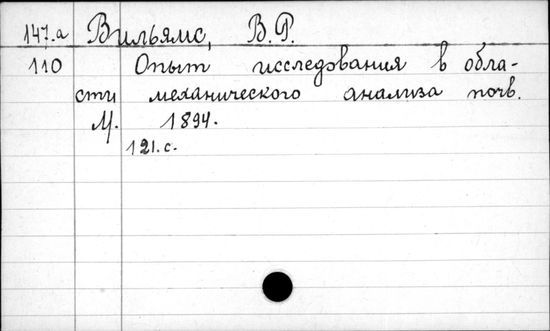 147.a Вильямс, В.Р.
110 Опыт исследования в обла-
сти механического анализа почв.
М. 1894.
121.с.